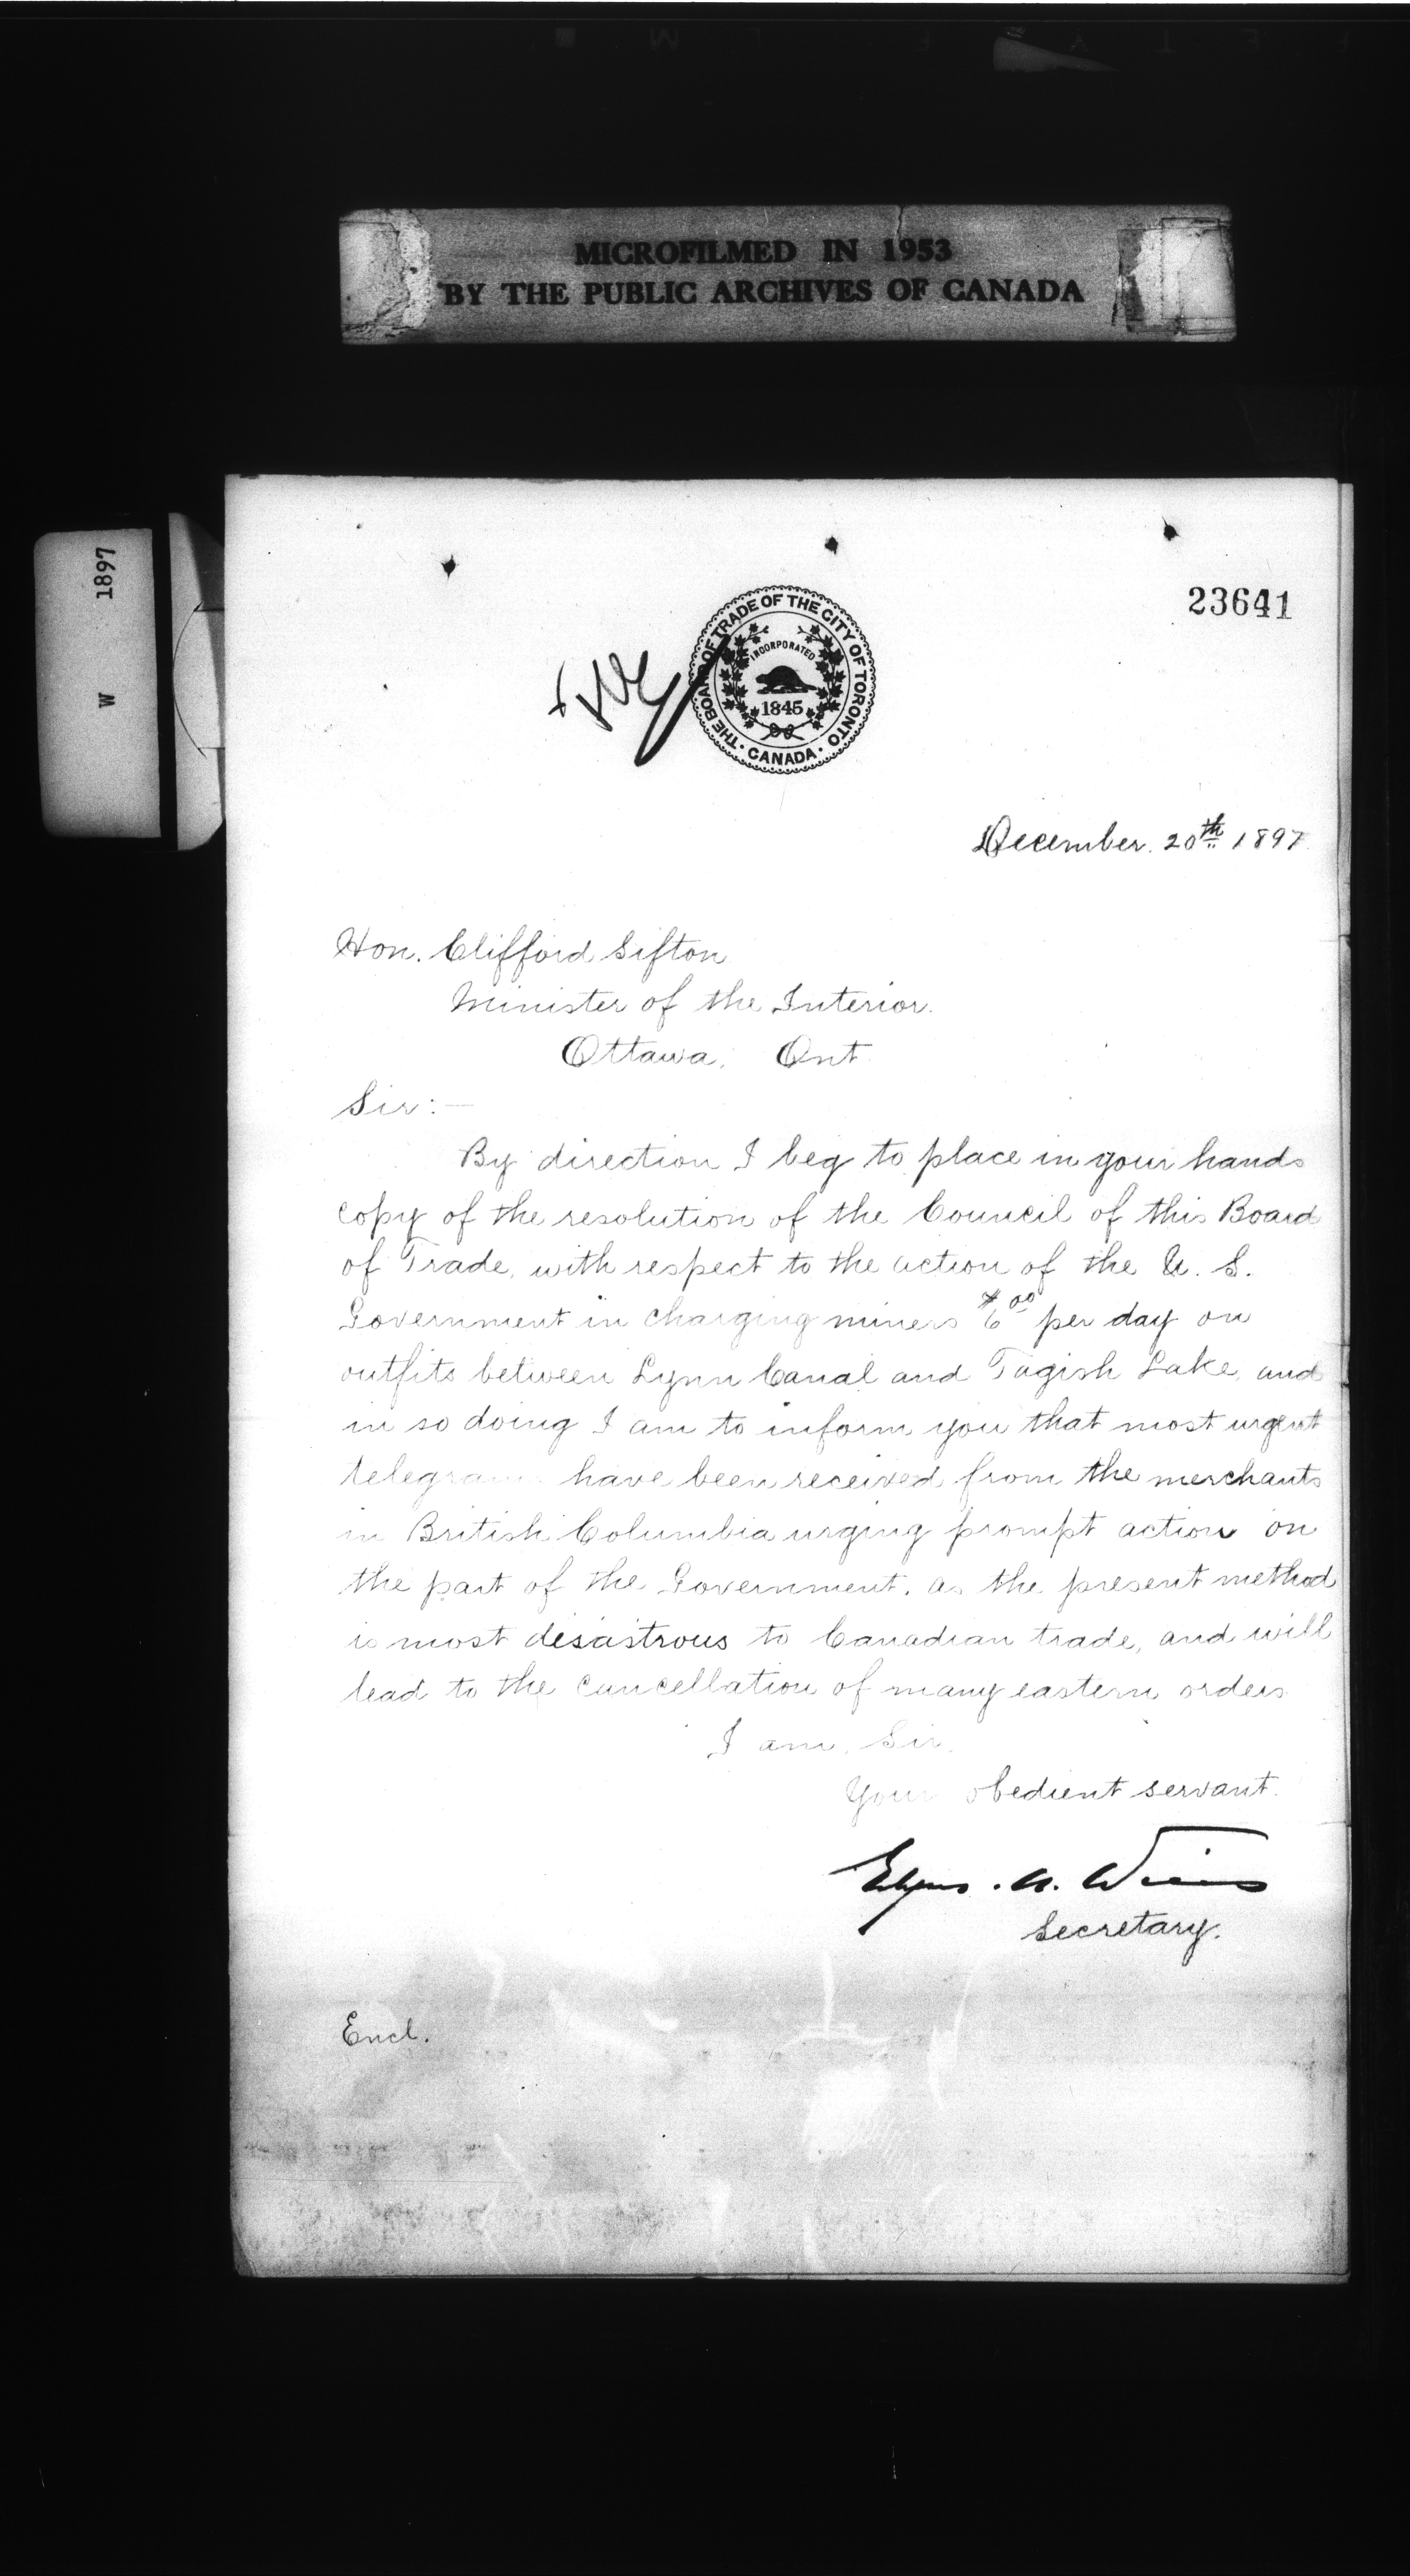 MICROFILMED IN 1953
BY THE PUBLIC ARCHIVES OF CANADA
W 1897
23641
THE BOARD OF TRADE OF THE CITY OF TORONTO
CANADA
INCORPORATED
1845
December. 20th 1897.
Hon. Clifford Sifton
Minister of the Interior.
Ottawa, Ont.
Sir:—
By direction I beg to place in your hands
copy of the resolution of the Council of this Board
of Trade, with respect to the action of the U. S.
Government in charging miners $6.00 per day on
outfits between Lynn Canal and Tagish Lake, and
in so doing I am to inform you that most urgent
telegrams have been received from the merchants
in British Columbia urging prompt action on
the part of the Government, as the present method
is most disastrous to Canadian trade, and will
lead to the cancellation of many eastern orders
I am, Sir,
Your obedient servant.
Edgar A. Wills
Secretary.
Encl.